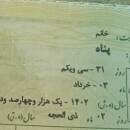 خانم
پناه
روز ۳۱ - سی ویکم
۰۳ - خرداد
سال (ه.ش) ۱۴۰۲ - یک هزار و چهارصد و دو
ذی الحجه
سال (ه.ق)